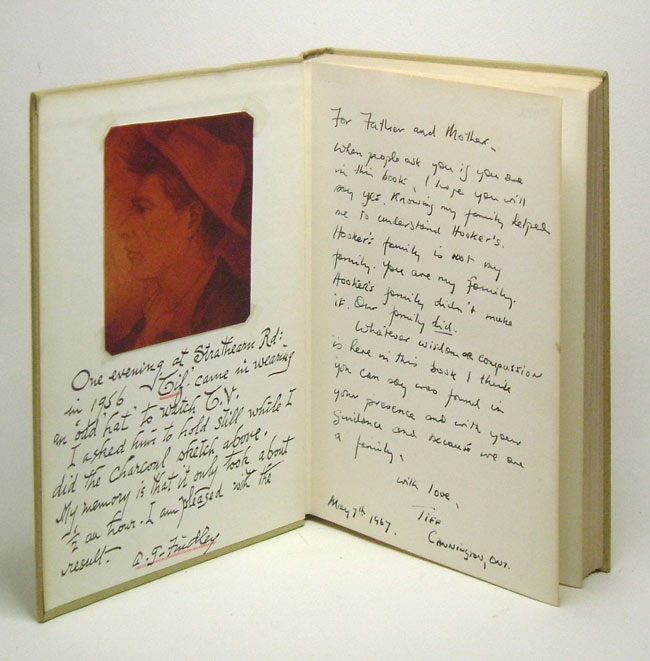 One evening at Strathearn Rd:-
in 1956 - 'Tif' came in wearing
an "odd hat" to watch T.V.
I asked him to hold still while I
did the charcoal sketch above.
My memory is that it only took about
½ an hour. I am pleased with the
result. A. G. Findley
For Father and Mother,
When people ask you if you are
in this book, I hope you will
say yes. Knowing my family helped
me to understand Hooker's.
Hooker's family is not my
family. You are my family.
Hooker's family didn't make
it. Our family did.
Whatever wisdom or compassion
is here in this book I think
you can say was found in
your presence and with your
guidance and because we are
a family.
with love,
Tiff
May 7th 1967.
Cannington, Ont.